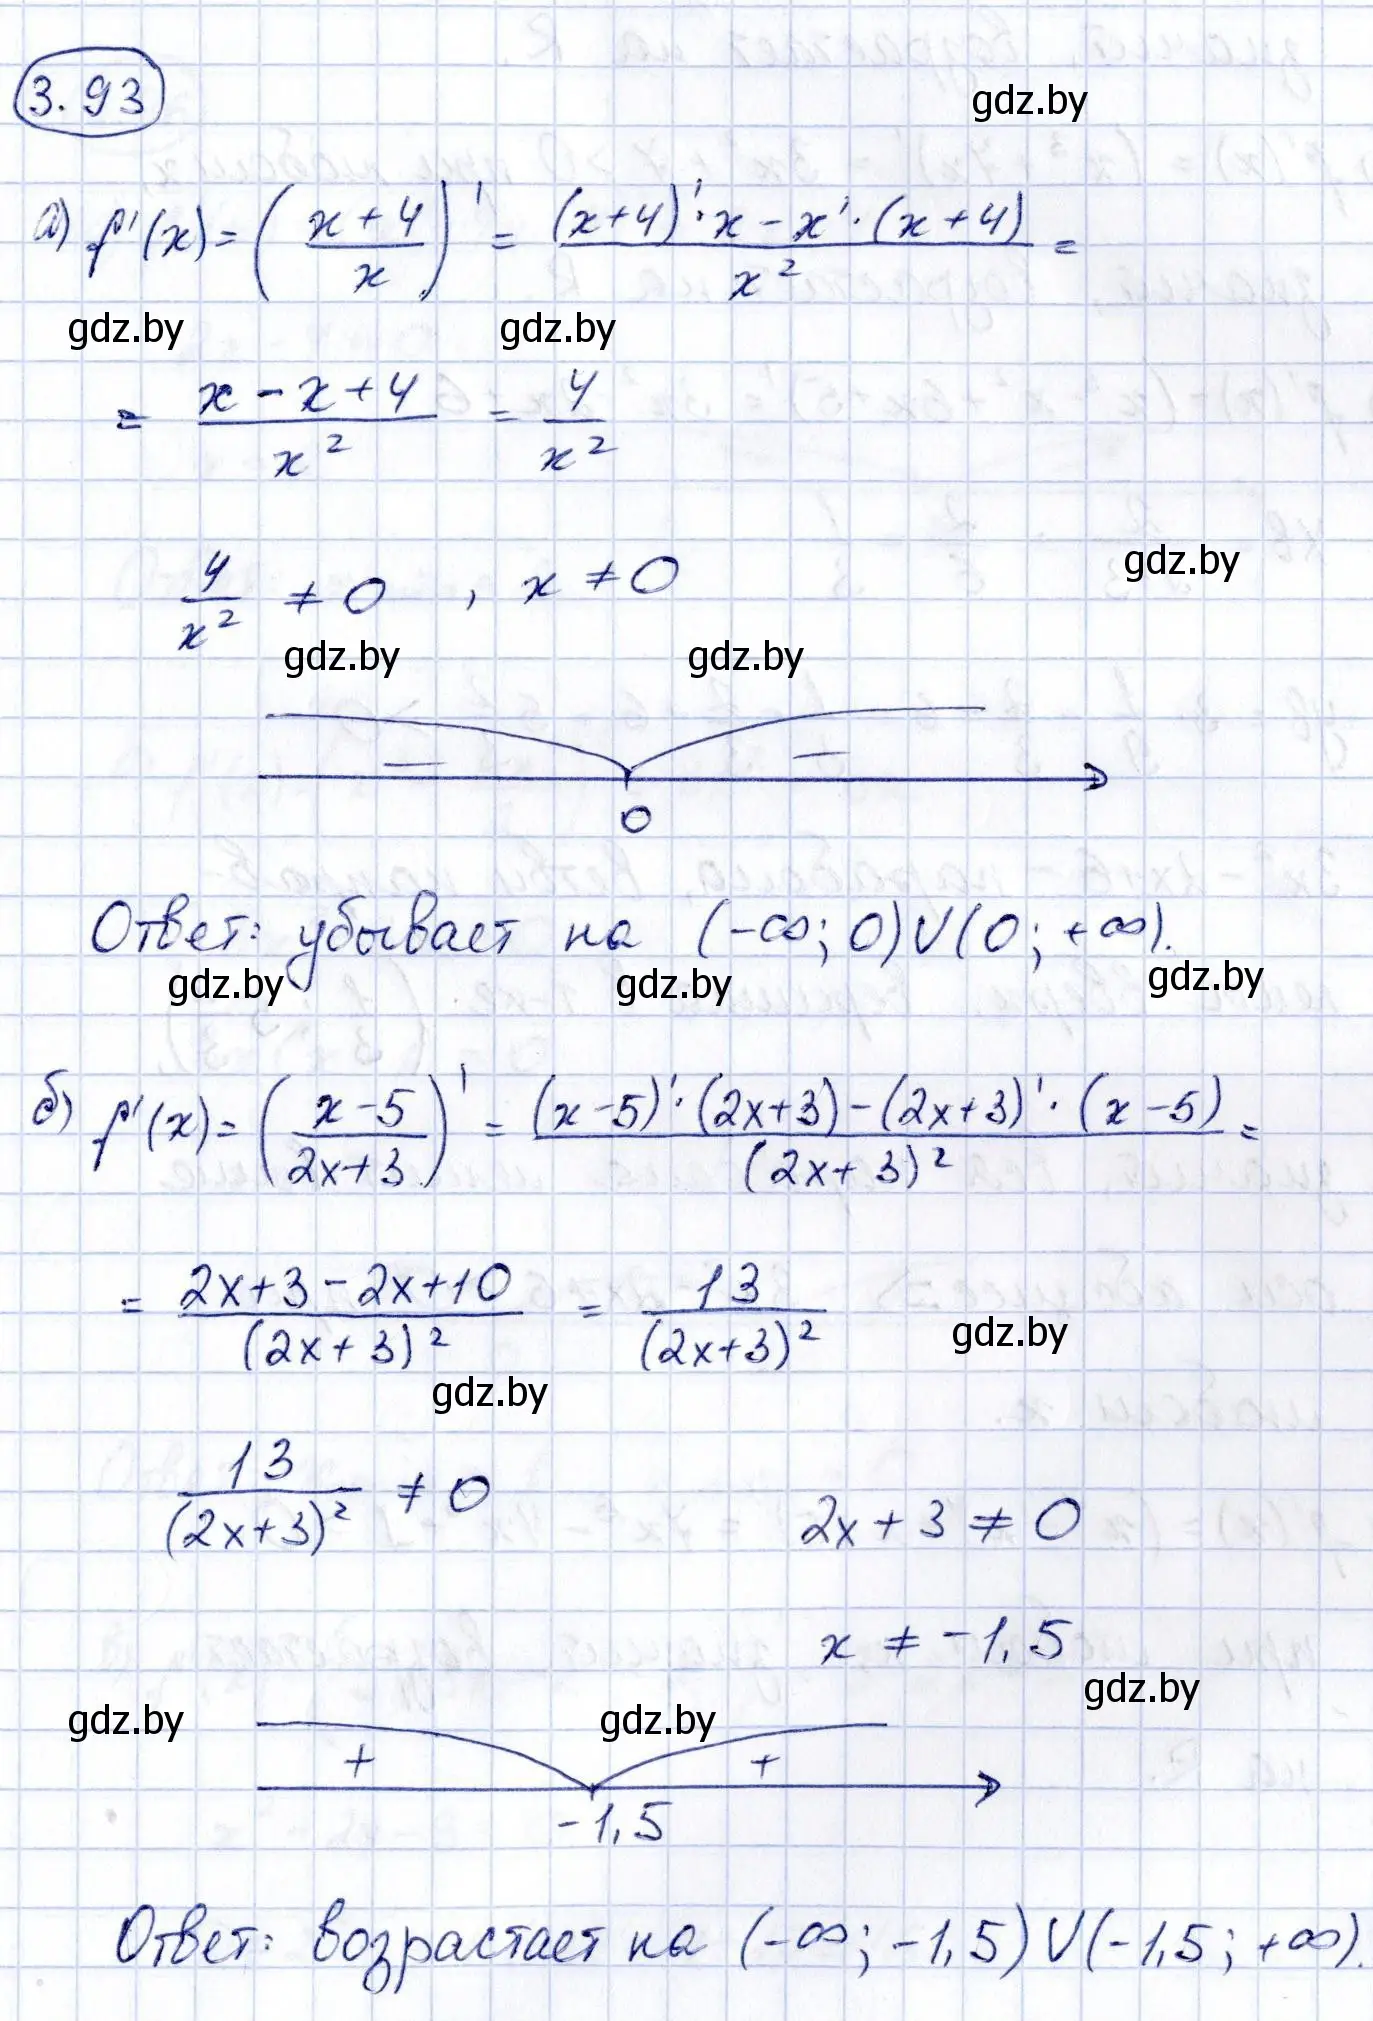 3.93
gdz.by
а) f'(x) = ( (x+4)/x )' = ((x+4)'·x - x'·(x+4))/x² =
gdz.by gdz.by
= (x - x + 4)/x² = 4/x²
gdz.by
4/x² ≠ 0 , x ≠ 0
gdz.by gdz.by
— —
0
Ответ: убывает на (-∞; 0) ∪ (0; +∞).
gdz.by gdz.by gdz.by
б) f'(x) = ( (x-5)/(2x+3) )' = ((x-5)'·(2x+3) - (2x+3)'·(x-5))/(2x+3)² =
= (2x+3-2x+10)/(2x+3)² = 13/(2x+3)²
gdz.by
gdz.by
13/(2x+3)² ≠ 0 2x+3 ≠ 0
x ≠ -1,5
gdz.by
gdz.by gdz.by
+ +
-1,5
Ответ: возрастает на (-∞; -1,5) ∪ (-1,5; +∞).